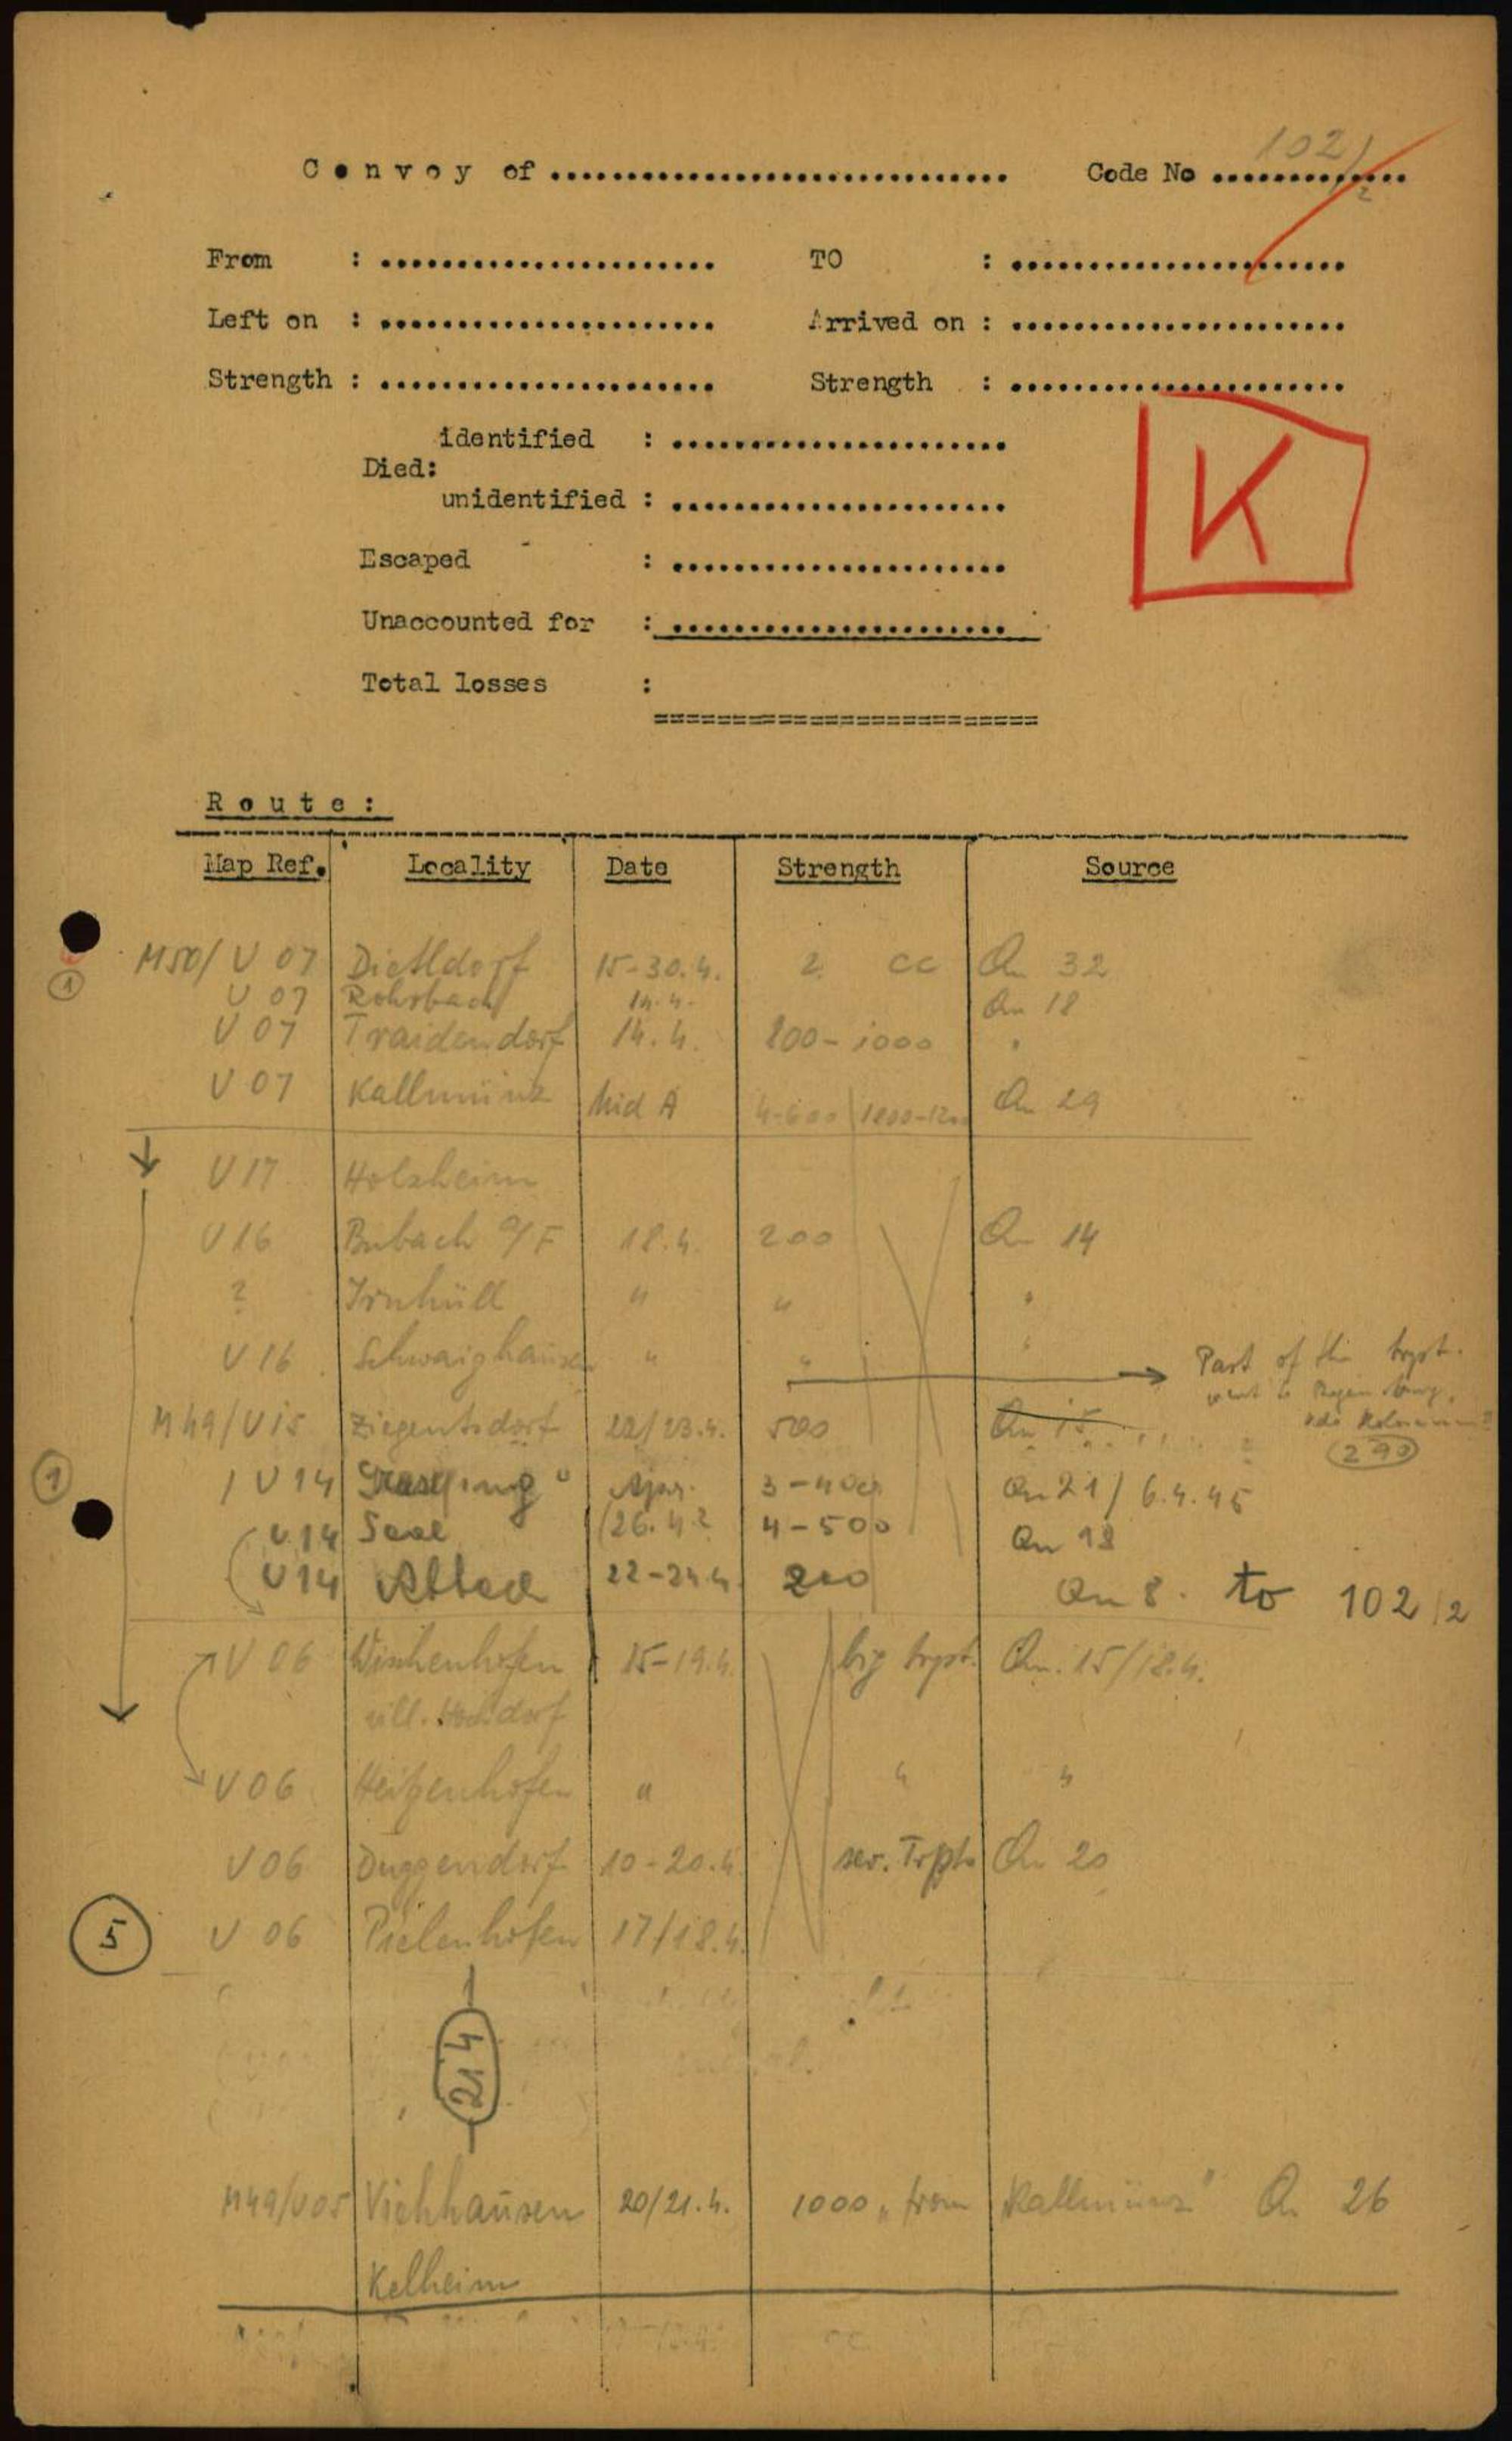 102/2
Convoy of .............................. Code No .............
From : ...................... TO : ......................
Left on : ...................... Arrived on : ......................
Strength : ...................... Strength : ......................
identified : ......................
Died:
unidentified : ......................
K
Escaped : ......................
Unaccounted for : ......................
Total losses :
=========================
Route:
Map Ref. Locality Date Strength Source
M50/ V 07 Dietldorf 15-30.4. 2 CC Qu 32
1
U 07 Rohrbach 14.4. Qu 18
V 07 Traidendorf 14.4. 800-1000 "
U 07 Kallmünz Mid A 4-600 1000-1200 Qu 29
U 17 Holzheim
U 16 Bubach a/F 18.4. 200 Qu 14
? Irnhüll " " "
V 16 Schwaighausen " " "
Part of this trspt.
went to Regensburg,
M49/U15 Ziegentsdorf 22/23.4. 500 Qu 15
290
1
/ U 14 "Grassfing" Apr. 3-400 Qu 21 / 6.4.45
U 14 Saal 26.4? 4-500 Qu 18
U14 Abbach 22-24.4. 200 Qu 8. to 102/2
V 06 Wischenhofen 15-19.4. big trspt. Qu. 15/18.4.
vill. Hochdorf
V 06 Heitzenhofen " " "
V 06 Duggendorf 10-20.4. sev. Trspts Qu 20
5
U 06 Pielenhofen 17/18.4.
214
M49/U05 Viehhausen 20/21.4. 1000 "from Kallmünz" Qu 26
Kelheim